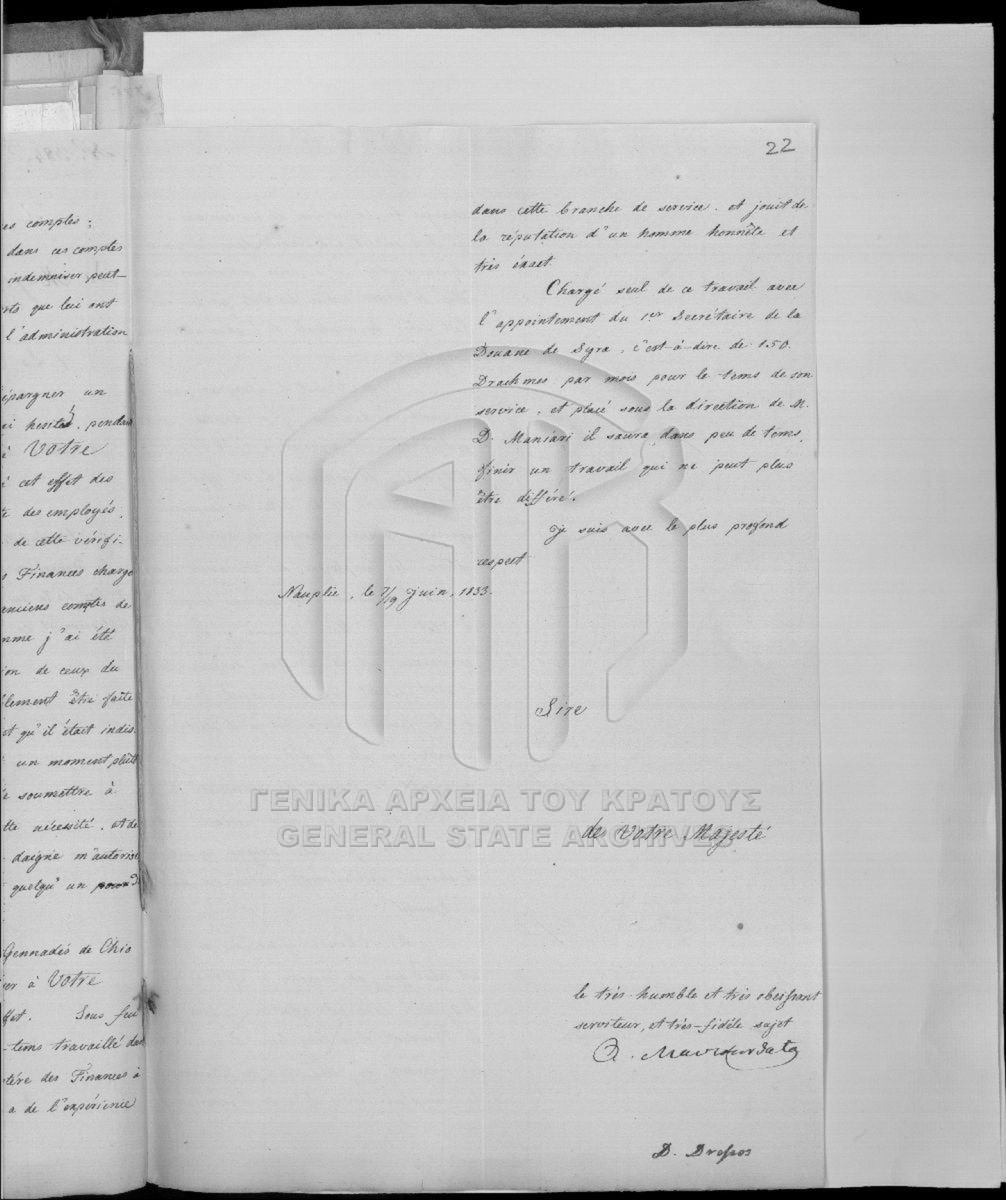 es comptes;
dans ces comptes
indemniser peut-
que lui ont
l'administration
épargner un
pendant
Votre
cet effet des
des employés,
de cette vérifi-
Finances charge
anciens comptes de
j'ai été
ion de ceux du
être faite
qu'il était indis-
un moment plutôt
soumettre à
nécessité, et de
daigne m'autoriser
quelqu'un
Gennadés de Chio
à Votre
Sous feu
-tems travaillé dans
des Finances à
a de l'expérience
22
dans cette branche de service, et jouit de
la réputation d'un homme honnête et
très éxact.
Chargé seul de ce travail avec
l'appointement du 1er Secrétaire de la
Douane de Syra, c'est-à-dire de 150.
Drachmes par mois pour le tems de son
service, et placé sous la direction de M.
D. Maniari il saura, dans peu de tems,
finir un travail qui ne peut plus
être différé.
Je suis avec le plus profond
respect
Nauplie, le 7/9 juin, 1833.
Sire
de Votre Majesté
le très-humble et très obéissant
serviteur, et très-fidèle sujet
A. Mavrocordato
D. Drosos
ΓΕΝΙΚΑ ΑΡΧΕΙΑ ΤΟΥ ΚΡΑΤΟΥΣ
GENERAL STATE ARCHIVES